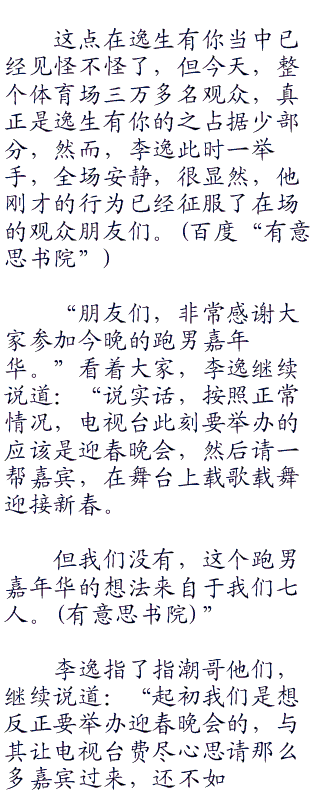 这点在逸生有你当中已
经见怪不怪了，但今天，整
个体育场三万多名观众，真
正是逸生有你的之占据少部
分，然而，李逸此时一举
手，全场安静，很显然，他
刚才的行为已经征服了在场
的观众朋友们。(百度“有意
思书院”)
“朋友们，非常感谢大
家参加今晚的跑男嘉年
华。”看着大家，李逸继续
说道：“说实话，按照正常
情况，电视台此刻要举办的
应该是迎春晚会，然后请一
帮嘉宾，在舞台上载歌载舞
迎接新春。
但我们没有，这个跑男
嘉年华的想法来自于我们七
人。(有意思书院)”
李逸指了指潮哥他们，
继续说道：“起初我们是想
反正要举办迎春晚会的，与
其让电视台费尽心思请那么
多嘉宾过来，还不如